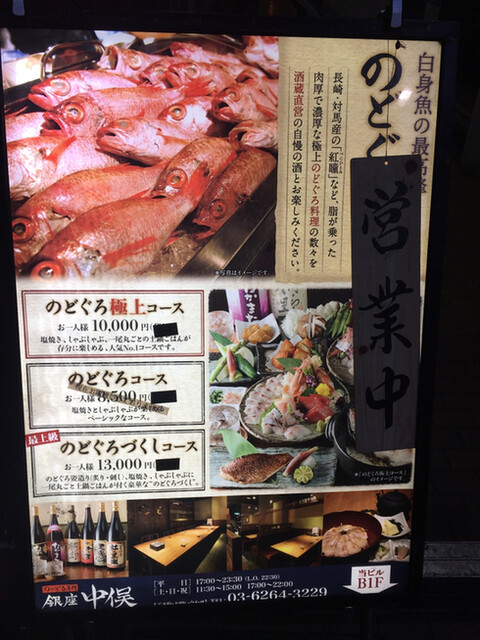 白身魚の最高峰
のどぐ
営業中
長崎、対馬産の「紅瞳」など、脂が乗った
肉厚で濃厚な極上のどぐろ料理の数々を
酒蔵直営の自慢の酒とお楽しみください。
＊写真はイメージです。
のどぐろ極上コース
お一人様 10,000円
塩焼き、しゃぶしゃぶ、一尾丸ごとの土鍋ごはんが
存分に楽しめる、人気No.1コースです。
のどぐろコース
お一人様 8,500円
塩焼きとしゃぶしゃぶが楽しめる
ベーシックなコース。
最上級
のどぐろづくしコース
お一人様 13,000円
のどぐろ姿造り(炙り・刺し)、塩焼き、しゃぶしゃぶに
一尾丸ごと土鍋ごはんが付く豪華な"のどぐろづくし"。
＊「のどぐろ極上コース」
のイメージです。
のどぐろ料理
銀座 中俣
[平 日] 17:00〜23:30 (L.O. 22:30)
[土・日・祝] 11:30〜15:00 17:00〜22:00
03-6264-3229
当ビル
B1F